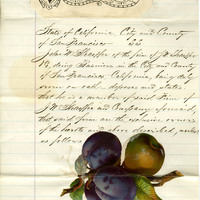 State of California, City and County
of San Francisco SS
John W. Shaeffer of the firm of J W Shaeffer
doing Business in the City and County
of San Francisco, California, being duly
sworn on oath deposes and states
that he is a member of said Firm of
J W Shaeffer and Company aforesaid,
that said firm are the exclusive owners
of the and above described,
as follows